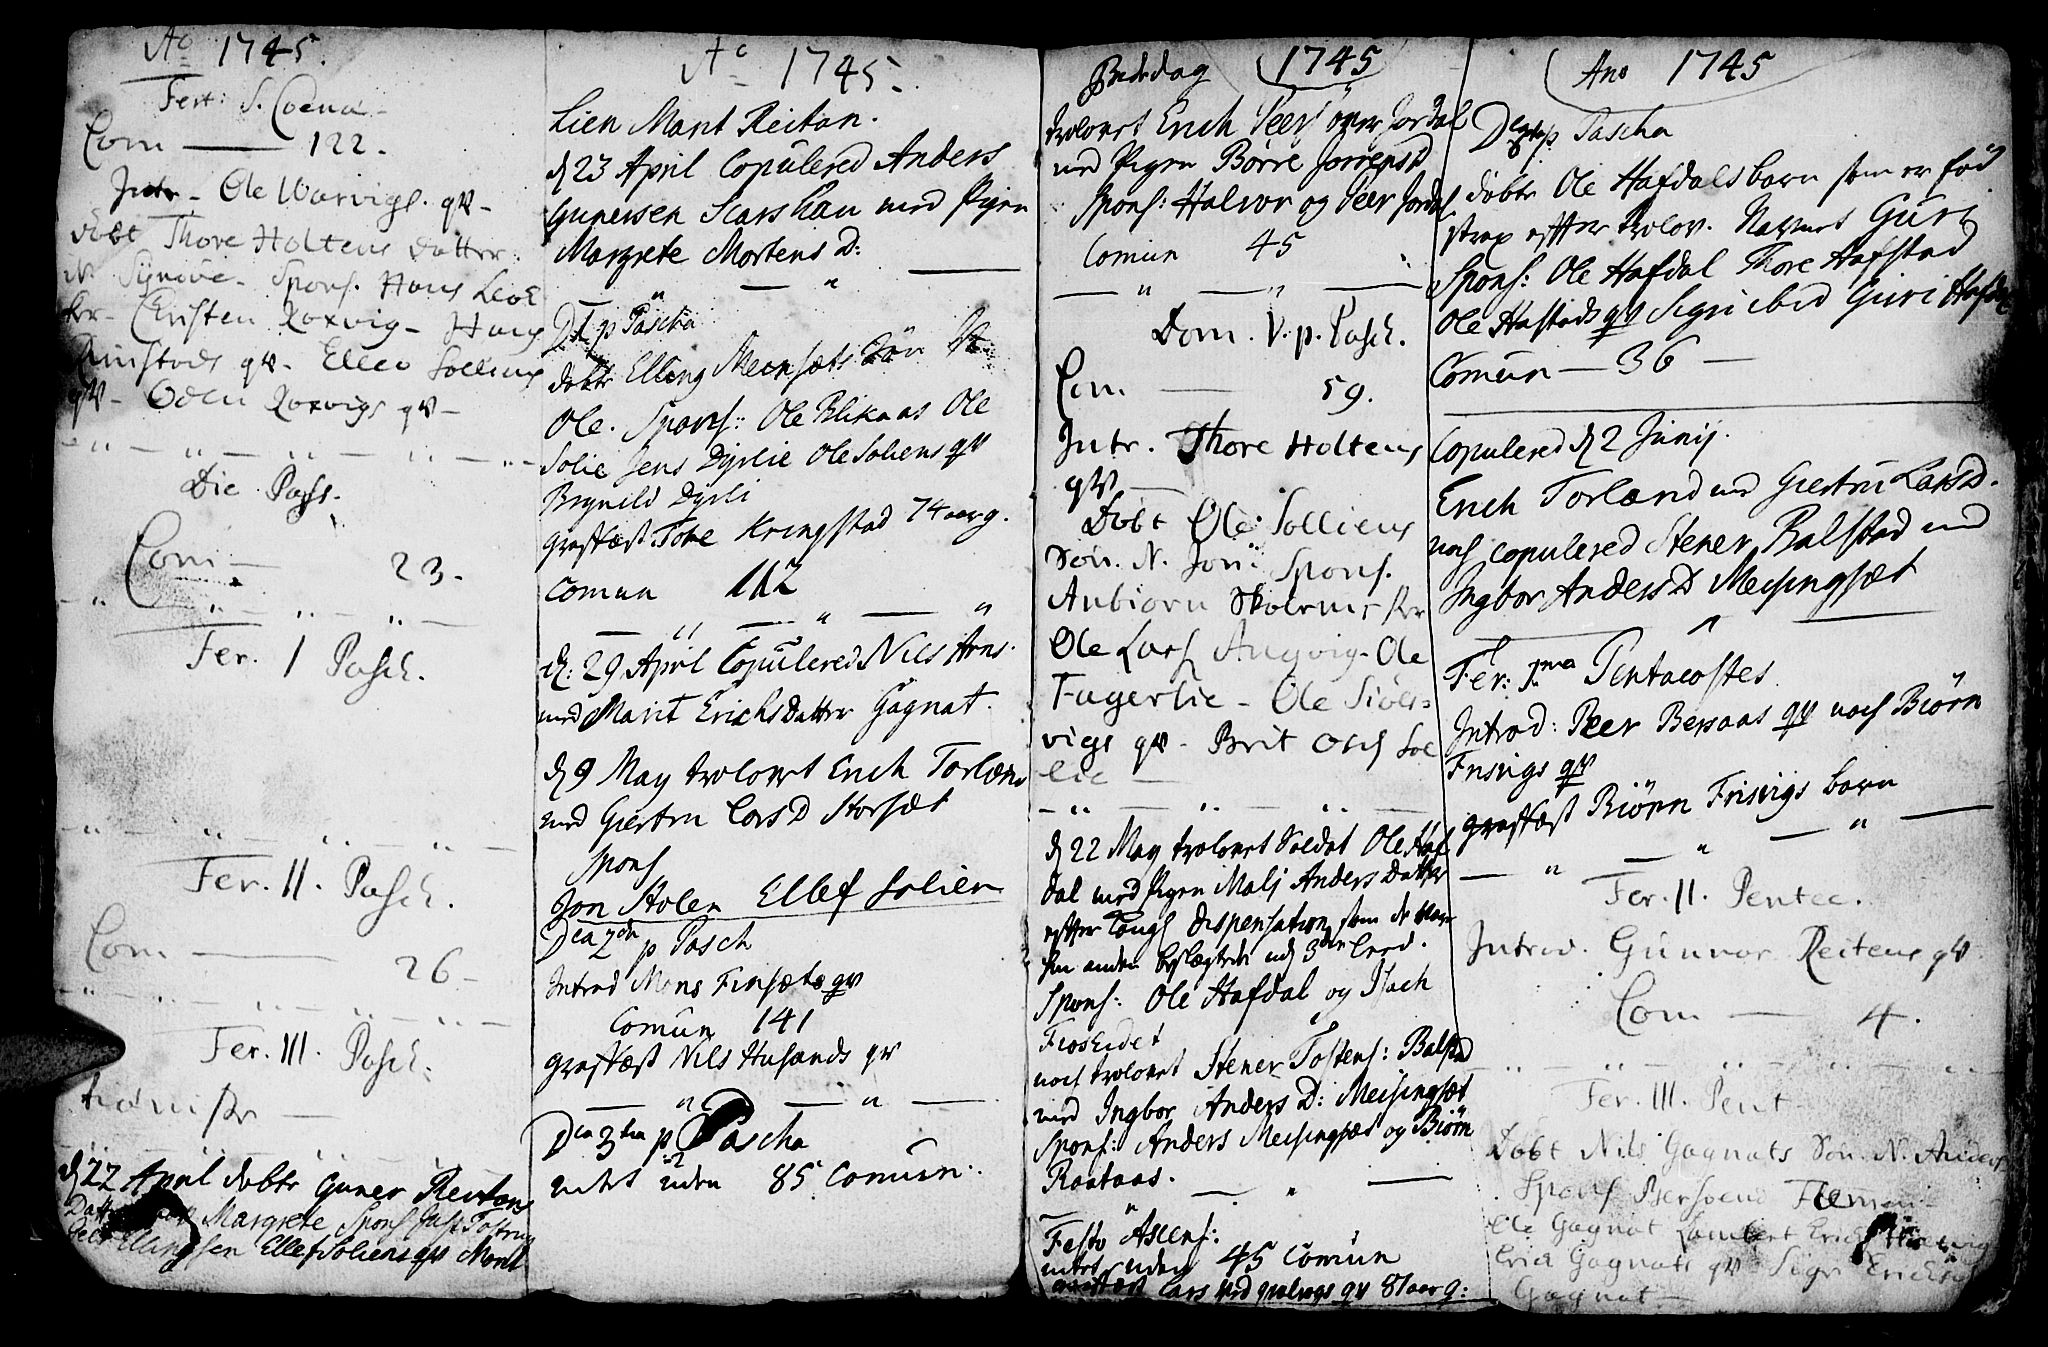 Ao 1745.
Fert: S. Coena
Com — 122.
Intr. Ole Warvigs. qv —
dobt Thore Holtens datter.
N. Synöve. Spons. Hans
Christen Roxvig — Hans
qv. Ellev Solliens
qv — Oden Roxvigs qv —
Die Pass.
Com — 23.
Fer. I Pasch.
Fer. II. Pasch.
Com — 26 —
Fer. III. Pasch.
d 22 April dobte Guner Reitans
Datter Margrete Spons
Ellingsen Ellef Soliens qv Marit
Ao 1745.
Lien Marit Reitan.
d 23 April Copulered Anders
Gunersen Scarshau med Pigen
Margrete Mortens D:
D 1 p Pascha
dobte Elling Meensæts Sön
Ole. Spons: Ole Blikaas Ole
Solie Jens Dyrlie Ole Soliens qv
Brynild Dyrli
græsfæst Tore Kringstad 74 aar g.
Comun 112
d: 29 April Copulered Nils Arns.
med Marit Erichs Datter Gagnat.
d 9 May trolovet Erich Torlæn
med Giertru Lars D Storsæt
Spons
Jon Stolen Ellef Solien
Dca 2da p Pasch
Introd Mons Finsæts qv
Comun 141
græsfæst Nils Husands qv
Dca 3tia p Pascha
intet uden 85 Comun.
Bededag 1745
trolovet Erich Peers over Jordal
med Pigen Börre Jorrens D
Spons: Halvor og Peer Jordal
Comun 45
Dom. V. p. Pasch.
Com — 59.
Intr. Thore Holtens
qv —
Dobt Ole Solliens
Sön. N. Jon. Spons.
Anbiorn
Ole Lars Angvig — Ole
Fagerlie — Ole Siöls-
vigs qv — Brit Sol
lie —
d 22 May trolovet Soldat Ole Haf
dal med Pigen Mali Anders Datter
efter Kongl dispensation som de var
hin anden beslægtede udj 3die Leed.
Spons: Ole Hafdal og Isach
Floskidet
noch trolovet Stener Tostens: Balstad
med Ingbor Anders D: Meisingsæt
Spons: Anders Meisingsæt og Biörn
Raataas.
Festo Ascens:
intet uden 45 Comun
græsfæst Lars qv 81 aar g:
Ano 1745
Dca p Pascha
döbte Ole Hafdals barn som er fød
strax efter trolov. Navnet Guri
Spons: Ole Hafdal Thore Hafstad
Ole Hafstads qv Sigri ibid Guri Hafdal
Comun — 36 —
Copulered d 2 Junij.
Erich Torlænd med Giertru Lars D.
noch copulered Stener Balstad med
Ingbor Anders D Meisingsæt
Fer: 1ma Pentacostes
Introd: Peer Bersaas qv noch Biörn
Frisvigs qv
græsfæst Biörn Frisvigs barn
Fer. II. Pentec.
Introd. Gunnor Reitens qv.
Com — 4.
Fer. III. Pent
Dobt Nils Gagnats Sön. N. Anders
Spons
Ole Gagnat Lambert Erich
Erich Gagnats qv — Sigri Erichs
Gagnat —